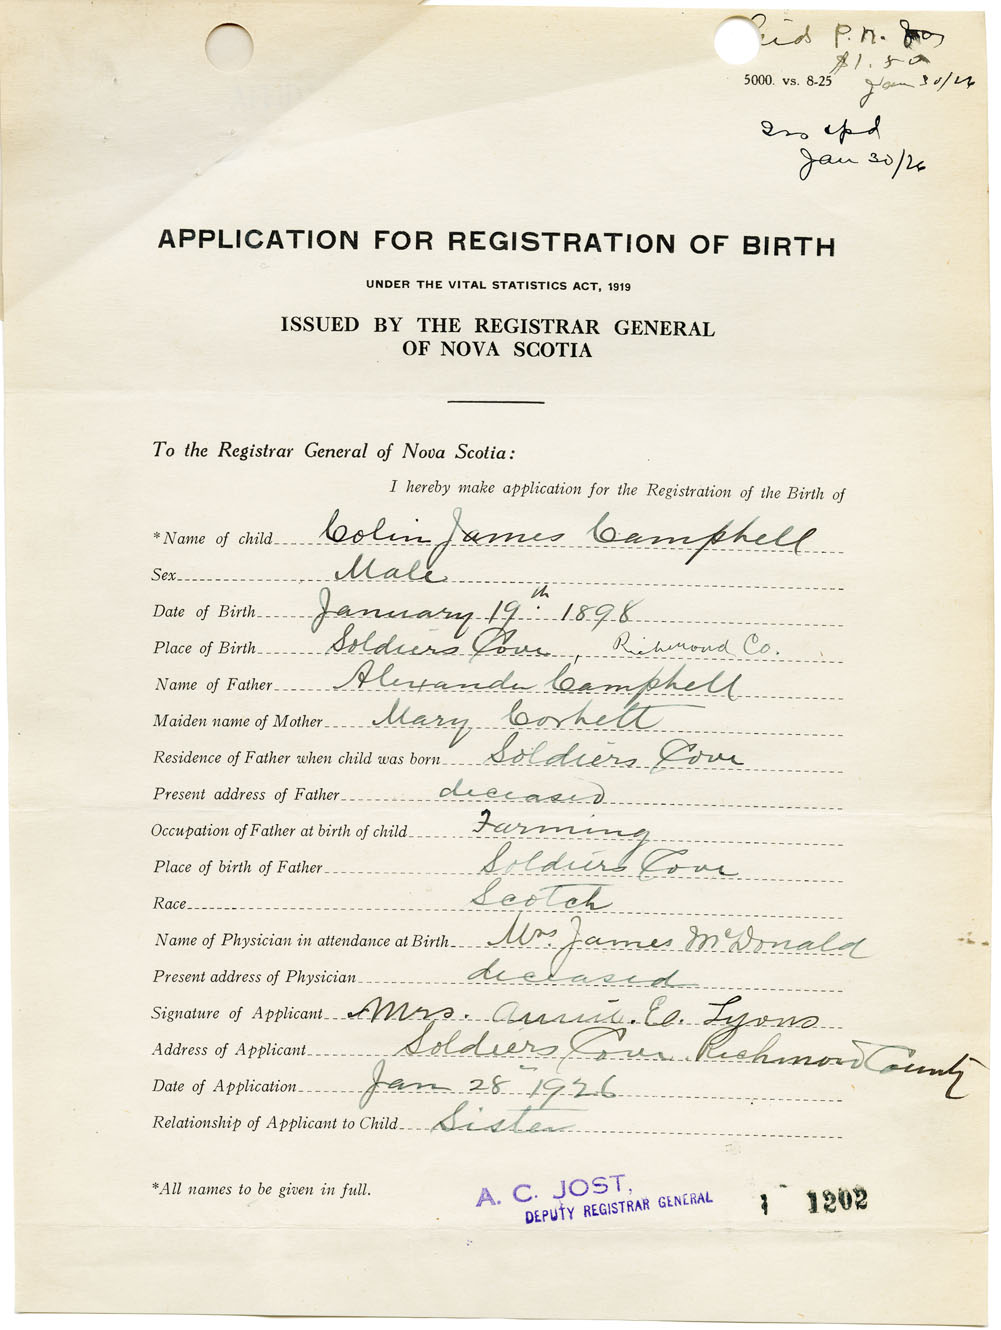 Paid P. N.
$1.50
5000. vs. 8-25 Jan 30/26
Jan 30/26
APPLICATION FOR REGISTRATION OF BIRTH
UNDER THE VITAL STATISTICS ACT, 1919
ISSUED BY THE REGISTRAR GENERAL
OF NOVA SCOTIA
To the Registrar General of Nova Scotia:
I hereby make application for the Registration of the Birth of
*Name of child Colin James Campbell
Sex Male
Date of Birth January 19th 1898
Place of Birth Soldiers Cove, Richmond Co.
Name of Father Alexander Campbell
Maiden name of Mother Mary Corbett
Residence of Father when child was born Soldiers Cove
Present address of Father deceased
Occupation of Father at birth of child Farming
Place of birth of Father Soldiers Cove
Race Scotch
Name of Physician in attendance at Birth Mrs. James McDonald
Present address of Physician deceased
Signature of Applicant Mrs. Annie. E. Lyons
Address of Applicant Soldiers Cove Richmond County
Date of Application Jan 28 1926
Relationship of Applicant to Child Sister
*All names to be given in full.
A. C. JOST,
DEPUTY REGISTRAR GENERAL
1 1202